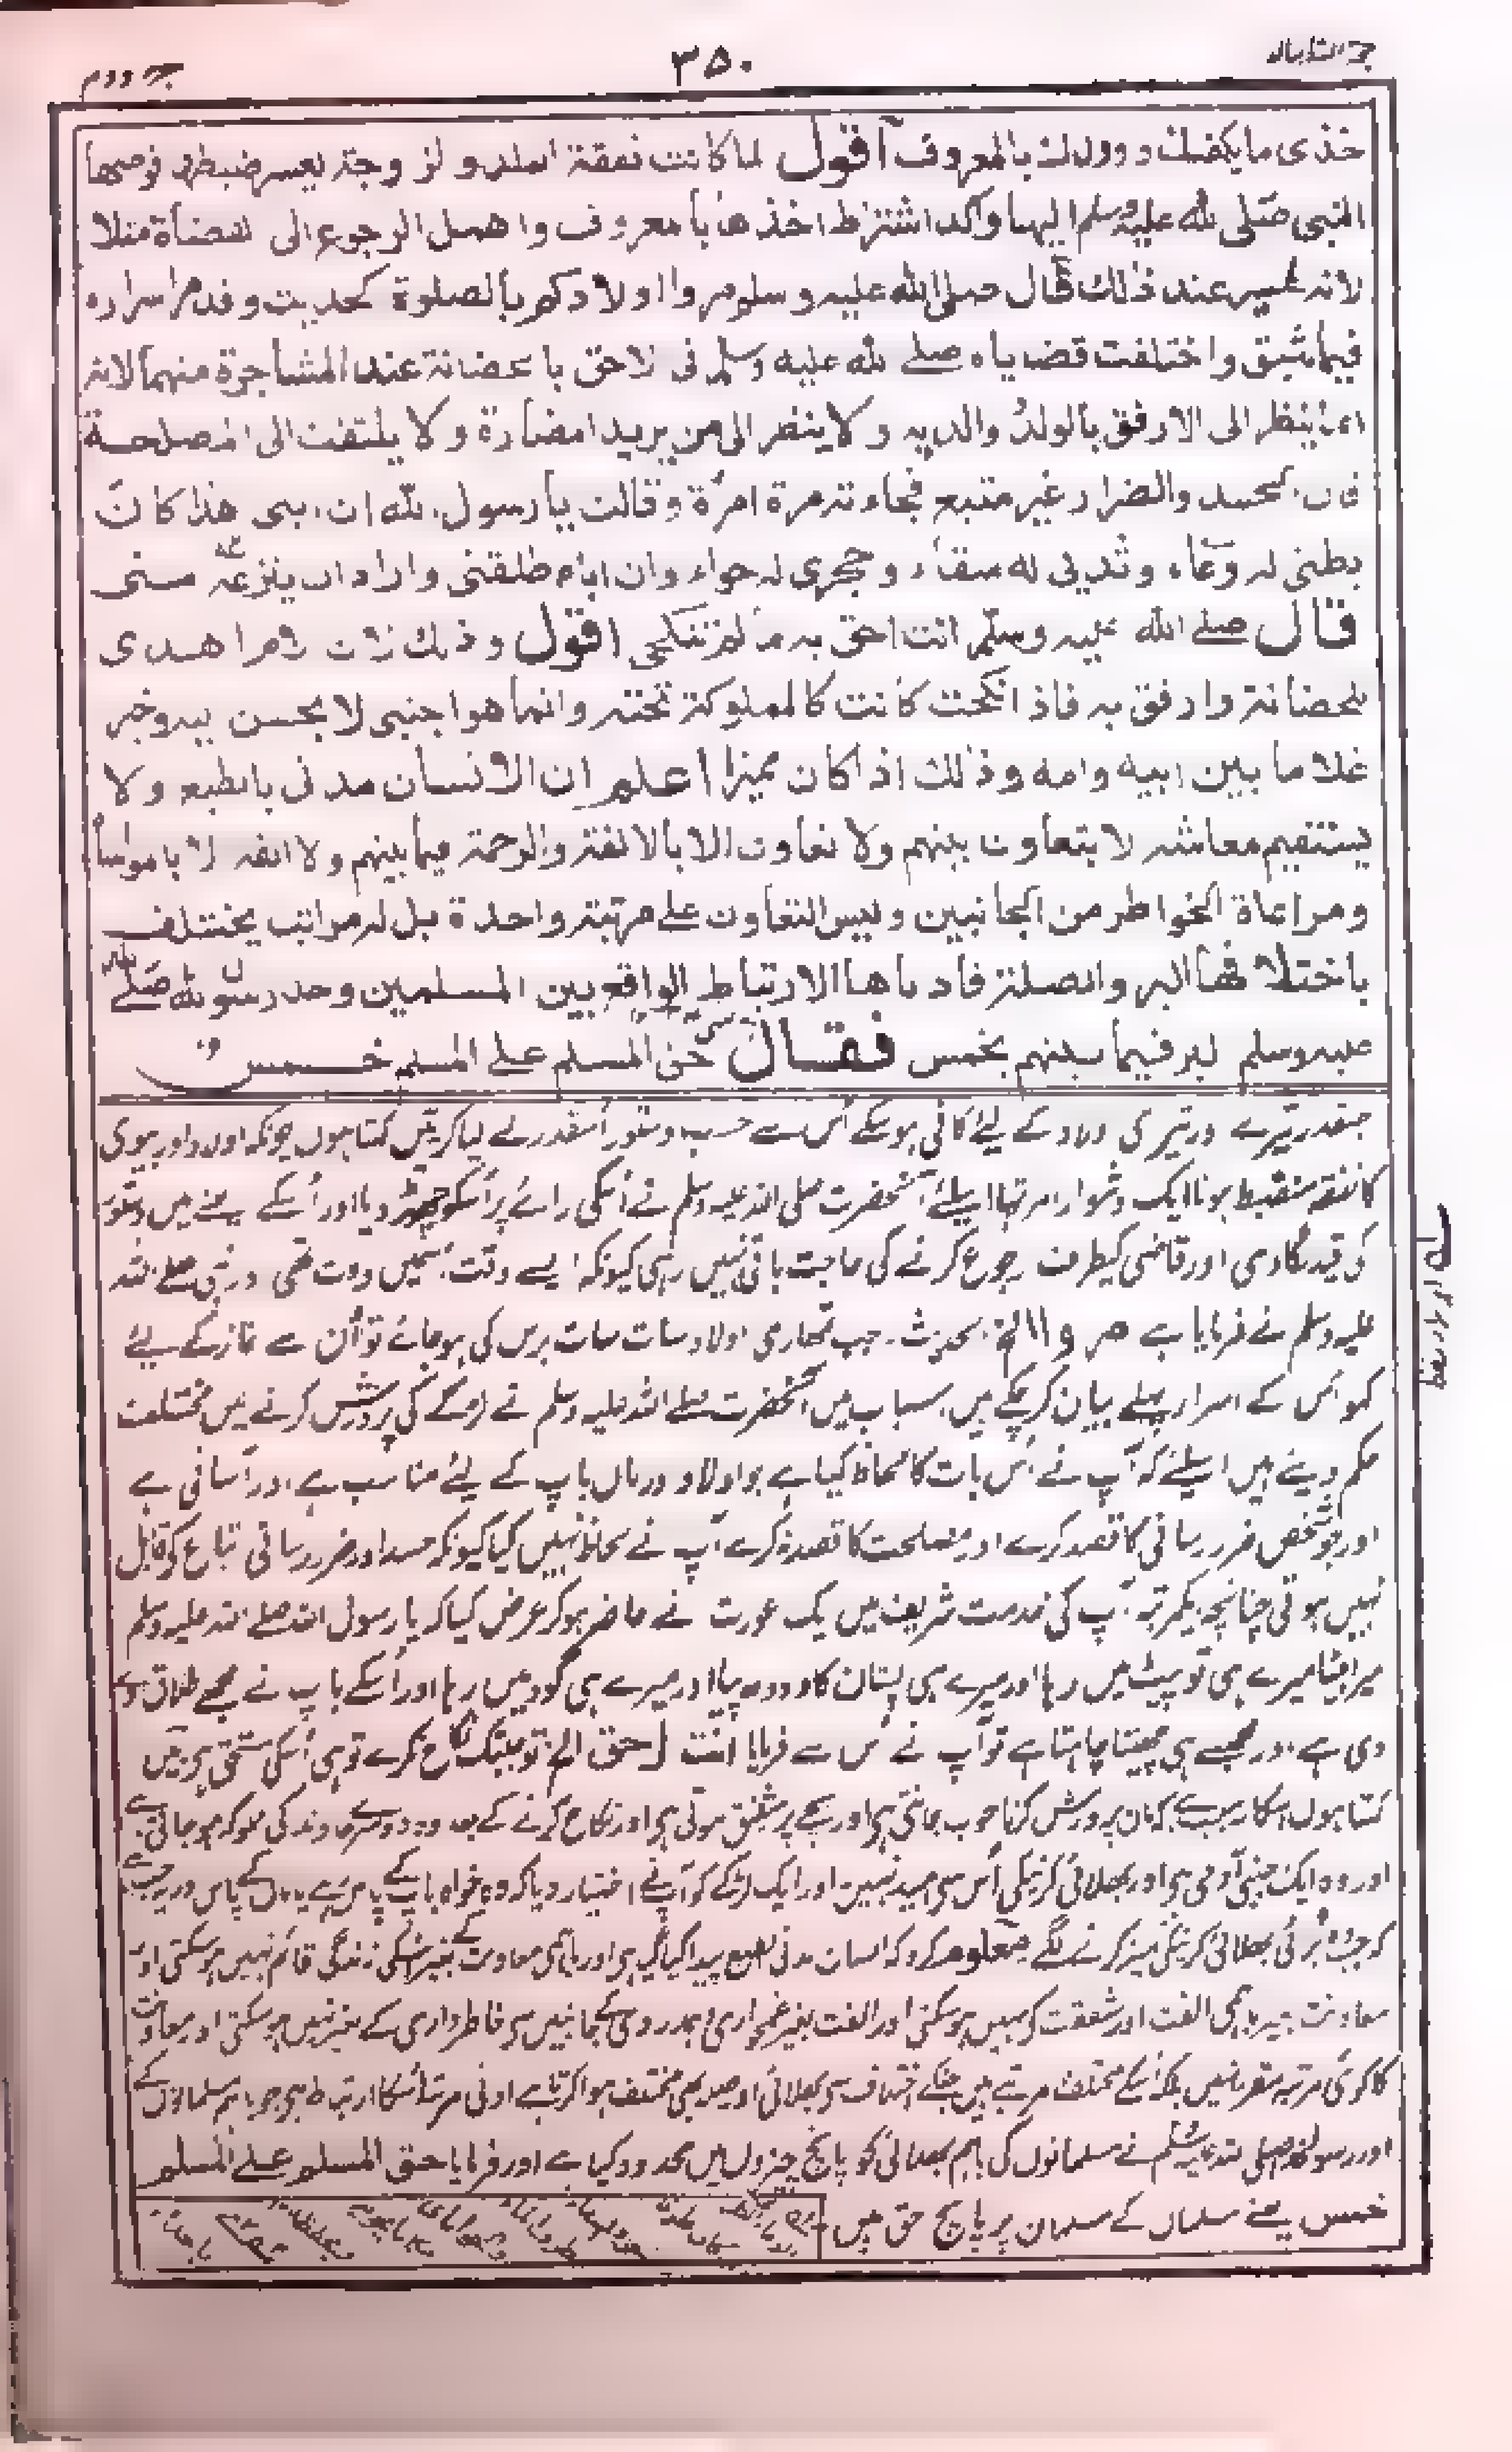 حجۃ اللہ البالغہ ۳۵۰ جلد دوم
خذی ما یکفیك وولدك بالمعروف اقول لما کانت نفقة الولد والزوجة یعسر ضبطها فوضها
النبی صلی الله علیه وسلم الیها واکد اشتراط اخذها بالمعروف واهمل الرجوع الی القضاة مثلا
لانه عسیر عند ذلك قال صلی الله علیه وسلم مروا اولادکم بالصلوة الحدیث وقد مر اسراره
فیما سبق واختلفت قضایاه صلے الله علیه وسلم فی الاحق بالحضانة عند المشاجرة منهما لانه
انما ینظر الی الارفق بالولد والدیه ولا ینظر الی من یرید المضارة ولا یلتفت الی المصلحة
فان الحسد والضرار غیر متبع فجاءته مرة امرأة وقالت یا رسول الله ان ابنی هذا کان
بطنی له وعاء وثدیی له سقاء وحجری له حواء وان اباه طلقنی واراد ان ینزعه منی
قال صلے الله علیه وسلم انت احق به ما لم تنکحی اقول وذلك لان الام اهدی
للحضانة وارفق به فاذا نکحت کانت کالمملوکة تحته وانما هو اجنبی لا یحسن الیه وخیر
غلاما بین ابیه وامه وذلك اذا کان ممیزا اعلم ان الانسان مدنی بالطبع ولا
یستقیم معاشه الا بتعاون بینهم ولا تعاون الا بالالفة والرحمة فیما بینهم ولا الفة الا بالمواساة
ومراعاة الخواطر من الجانبین ولیس التعاون علی مرتبة واحدة بل له مراتب یختلف
باختلافها البر والصلة فادناها الارتباط الواقع بین المسلمین وحد رسول الله صلے الله
علیه وسلم البر فیما بینهم بخمس فقال حق المسلم علی المسلم خمس
جسقدر تیرے اور تیری اولاد کے لیے کافی ہو سکے اُس سے حسب دستور اُسقدر لے لیا کر میں کہتا ہوں چونکہ اولاد اور بیوی
کا نفقہ منضبط ہونا ایک دشوار امر تھا اسلیئے آنحضرت صلی اللہ علیہ وسلم نے اُسکی رائے پر اُسکو چھوڑ دیا اور اُسکے لینے میں دستور
کی قید لگا دی اور قاضی کیطرف رجوع کرنے کی حاجت باقی نہیں رہی کیونکہ ایسے وقت اسمیں دقت تھی اور نبی صلے اللہ
علیہ وسلم نے فرمایا ہے مروا الخ الحدیث۔ جب تمھاری اولاد سات سات برس کی ہو جائے تو اُن سے نماز کے لیے
کہو اس کے اسرار پہلے بیان کر چکے ہیں اسباب میں آنحضرت صلے اللہ علیہ وسلم نے لڑکے کی پرورش کرنے میں مختلف
حکم دیئے ہیں اسلیئے کہ آپ نے اس بات کا لحاظ کیا ہے جو اولاد اور ماں باپ کے لیے مناسب ہے اور آسانی ہے
اور جو شخص ضرر رسانی کا قصد کرے اور مصلحت کا قصد نہ کرے آپ نے لحاظ نہیں کیا کیونکہ حسد اور ضرر رسانی اتباع کے قابل
نہیں ہوتی چنانچہ یکمرتبہ آپ کی خدمت شریف میں ایک عورت نے حاضر ہو کر عرض کیا کہ یا رسول اللہ صلے اللہ علیہ وسلم
میرا بیٹا میرے ہی تو پیٹ میں رہا اور میرے ہی پستان کا دودھ پیا اور میرے ہی گود میں رہا اور اُسکے باپ نے مجھے طلاق
دی ہے اور مجھسے ہی چھیننا چاہتا ہے تو آپ نے اُس سے فرمایا انت احق الخ تو جبتک نکاح نکرے تو ہی اُسکی مستحق ہے میں
کہتا ہوں اسکا سبب یہ ہے کہ ماں پرورش کرنا خوب جانتی ہے اور بچے پر شفیق ہوتی ہے اور نکاح کرنے کے بعد وہ دوسرے خاوند کی مملوکہ ہو جاتی ہے
اور وہ ایک اجنبی آدمی ہے اور بھلائی کرنیکی اُس سے امید نہیں اور ایک لڑکے کو آپ نے اختیار دیا کہ وہ خواہ باپ کے پاس رہے یا ماں کے پاس اور یہ جب ہے
کہ جب وہ برائی بھلائی کرنیکی تمیز کرنے لگے معلوم کرو کہ انسان مدنی الطبع پیدا کیا گیا ہے اور باہمی معاونت کے بغیر اُسکی زندگی قائم نہیں ہو سکتی اور
معاونت بغیر باہمی الفت اور شفقت کے نہیں ہو سکتی اور الفت بغیر غمخواری و ہمدردی کے جانبین سے خاطرداری کے بغیر نہیں ہو سکتی اور معاونت
کا کوئی مرتبہ مقرر نہیں بلکہ اُسکے مختلف مرتبے ہیں جنکے اختلاف سے بھلائی اور صلہ بھی مختلف ہوا کرتا ہے ادنی مرتبہ اُسکا ارتباط ہے جو باہم مسلمانوں کے
اور رسول اللہ صلی اللہ علیہ وسلم نے مسلمانوں کی باہم بھلائی کو پانچ چیزوں میں محدود کیا ہے اور فرمایا حق المسلم علے المسلم
خمس یعنے مسلمان کے مسلمان پر پانچ حق ہیں